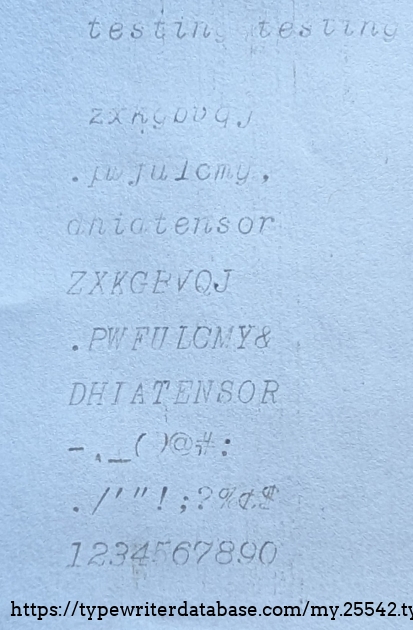 testing testing
zxkgbvqj
.pwfulcmy,
dhiatensor
ZXKGBVQJ
.PWFULCMY&
DHIATENSOR
-,_()@#:
./'"!;?%¢$
1234567890
https://typewriterdatabase.com/my.25542.ty